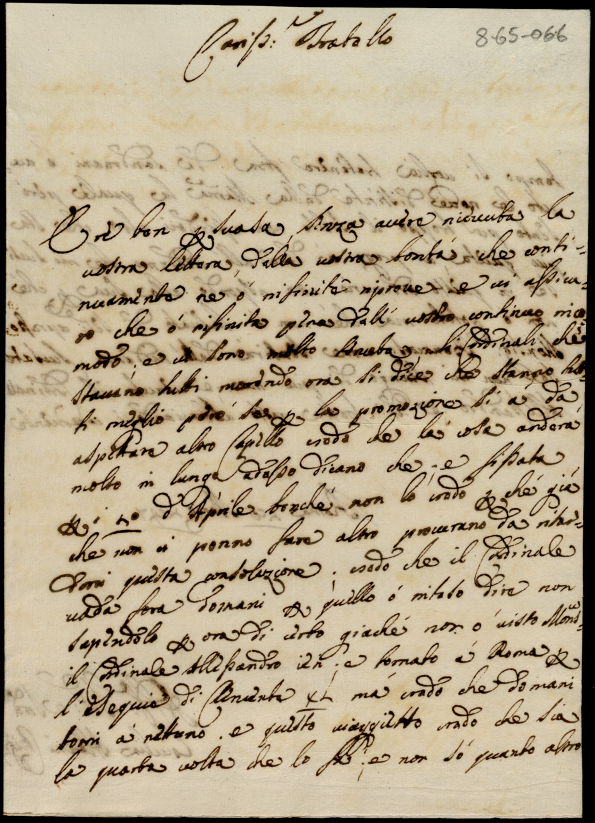 8-65-066
Cariss.mo Fratello
Ero ben p suasa, senza avere riceuuta la
vostra lettera, dalla vostra bontà che conti=
nuamente ne ó infinite riprove, e vi assicu=
ro che ó infinita pena dall' vostro continuo inco
modo; e vi sono molto tenuta, li Cardinali che
stavano tutti morendo ora si dice che stanno tut=
ti meglio però se p la promozione si á da
aspettare altro Capello credo che la cosa anderà
molto in lungo adesso dicano che é fissata
p i d'Aprile benché non lo credo p ché già
che non ci ponno fare altro procurano da ritar=
darsi questa consolazione, credo che il Cardinale
vada fora domani p quello ó inteso dire non
sapendolo p ora di certo giaché non ó visto
il Cardinale Alessandro ieri é tornato á Roma p
l'esequie di ma credo che domani
torni á nettuno, e questo viaggietto credo che sia
la quarta volta che lo fá, e non só quanto altro